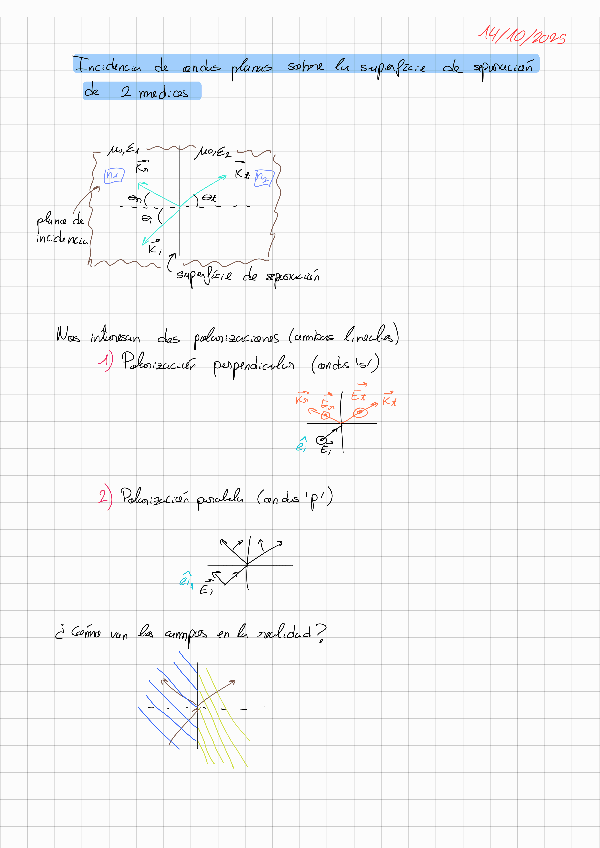 14/10/2025
Incidencia de ondas planas sobre la superficie de separación
de 2 medios
μ0, ε1 μ0, ε2
Kr Kt
n1 n2
θr θt
θi
plano de
incidencia
Ki
superficie de separación
Nos interesan dos polarizaciones (ambas lineales)
1) Polarización perpendicular (ondas 's')
Kr Er Et Kt
êi Ei
2) Polarización paralela (ondas 'p')
êi
Ei
¿Cómo van los campos en la realidad?